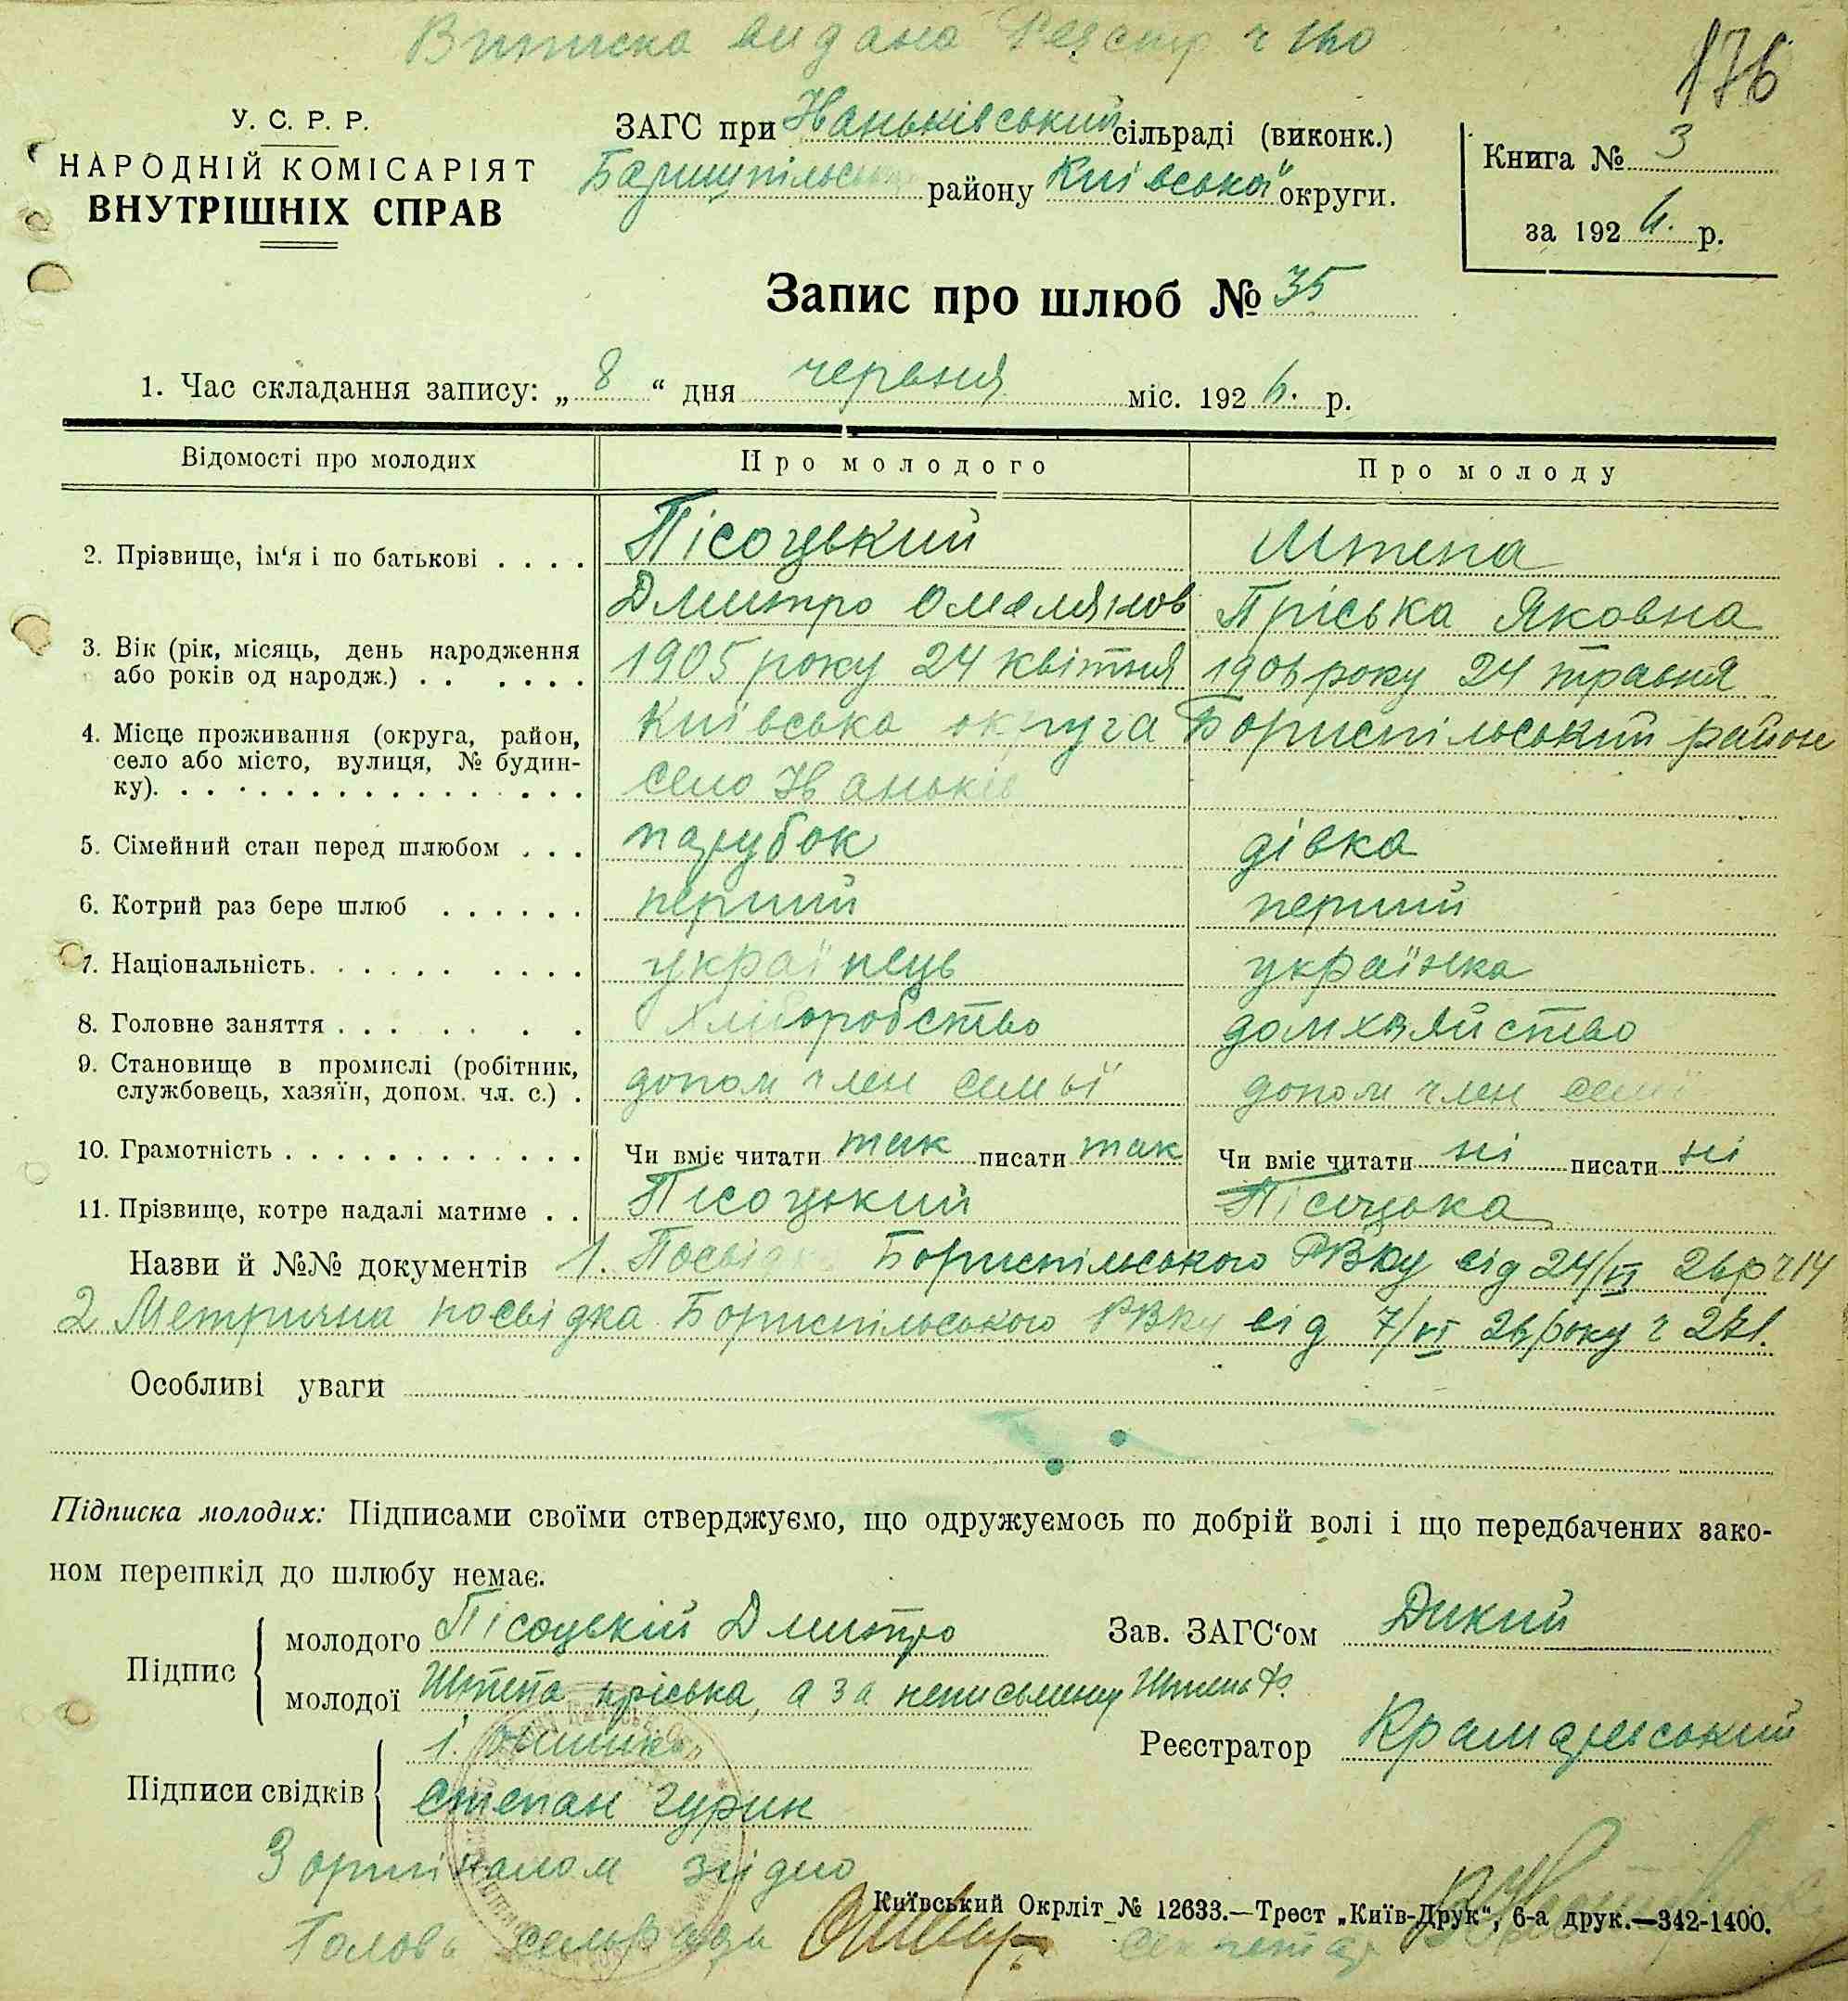 Виписка видана Реєстр ч 160
176
У. С. Р. Р.
НАРОДНІЙ КОМІСАРІЯТ
ВНУТРІШНІХ СПРАВ
ЗАГС при Іваньківський сільраді (виконк.)
Баришпільськ району Київської округи.
Книга № 3
за 1926. р.
Запис про шлюб № 35
1. Час складання запису: „8“ дня червня міс. 1926. р.
Відомості про молодих
Про молодого
Про молоду
2. Прізвище, ім‘я і по батькові . . . .
Пісоцький
Штепа
Дмитро Омелянов
Пріська Яковна
3. Вік (рік, місяць, день народження
або років од народж.) . . . . . .
1905 року 24 квітня
1906 року 24 травня
4. Місце проживання (округа, район,
село або місто, вулиця, № будин-
ку). . . . . . . . . . . . . . . .
Київська округа Бориспільський район
село Іваньків
5. Сімейний стан перед шлюбом . . .
парубок
дівка
6. Котрий раз бере шлюб . . . . . .
перший
перший
7. Національність. . . . . . . . . .
українець
українка
8. Головне заняття . . . . . . .
Хліборобство
домхазяйство
9. Становище в промислі (робітник,
службовець, хазяїн, допом. чл. с.) .
допом член семьї
допом член семї
10. Грамотність . . . . . . . . . . . . .
Чи вміє читати так писати так
Чи вміє читати ні писати ні
11. Прізвище, котре надалі матиме . .
Пісоцький
Пісоцька
Назви й №№ документів 1. Посвідка Бориспільського РВКу від 24/VI 26р ч 14
2 Метрична посвідка Бориспільського РВКу від 7/VI 26 року ч 271.
Особливі уваги
Підписка молодих: Підписами своїми стверджуємо, що одружуємось по добрій волі і що передбачених зако-
ном перешкід до шлюбу немає.
Підпис
молодого Пісоцькій Дмитро
молодої Штепа пріська, а за неписьменну Штепа
Зав. ЗАГС‘ом Дикий
Реєстратор
Підписи свідків
1.
Степан Гурин
З оригіналом згідно
Київський Окрліт № 12633.—Трест „Київ-Друк“, 6-а друк.—342-1400.
Голова сельради
секретар